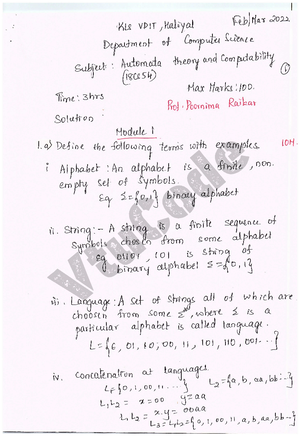 KLS VDIT, Haliyal
Feb/Mar 2022
Department of Computer Science
Subject: Automata theory and Computability
(18CS54)
1
Max Marks: 100.
Time: 3hrs
Prof. Poornima Raikar
Solution
Module 1
1.a) Define the following terms with examples 10M
i Alphabet: An alphabet is a finite, non.
empty set of symbols.
Eg Σ={0,1} binary alphabet
ii. String:- A string is a finite sequence of
symbols chosen from some alphabet
eg 01101, 101 is string of
binary alphabet Σ={0,1}
iii. Language: A set of strings all of which are
choosen from some Σ*, where Σ is a
particular alphabet is called language.
L={ε, 01, 10, 00, 11, 101, 110, 001...}
iv. Concatenation of languages
L1={0, 1, 00, 11...} L2={a, b, aa, bb...}
L1L2 = x=00 y=aa
L1L2 = x.y = 00aa
L3=L1L2={0, 1, 00, 11, a, b, aa, bb...}
VtuCode